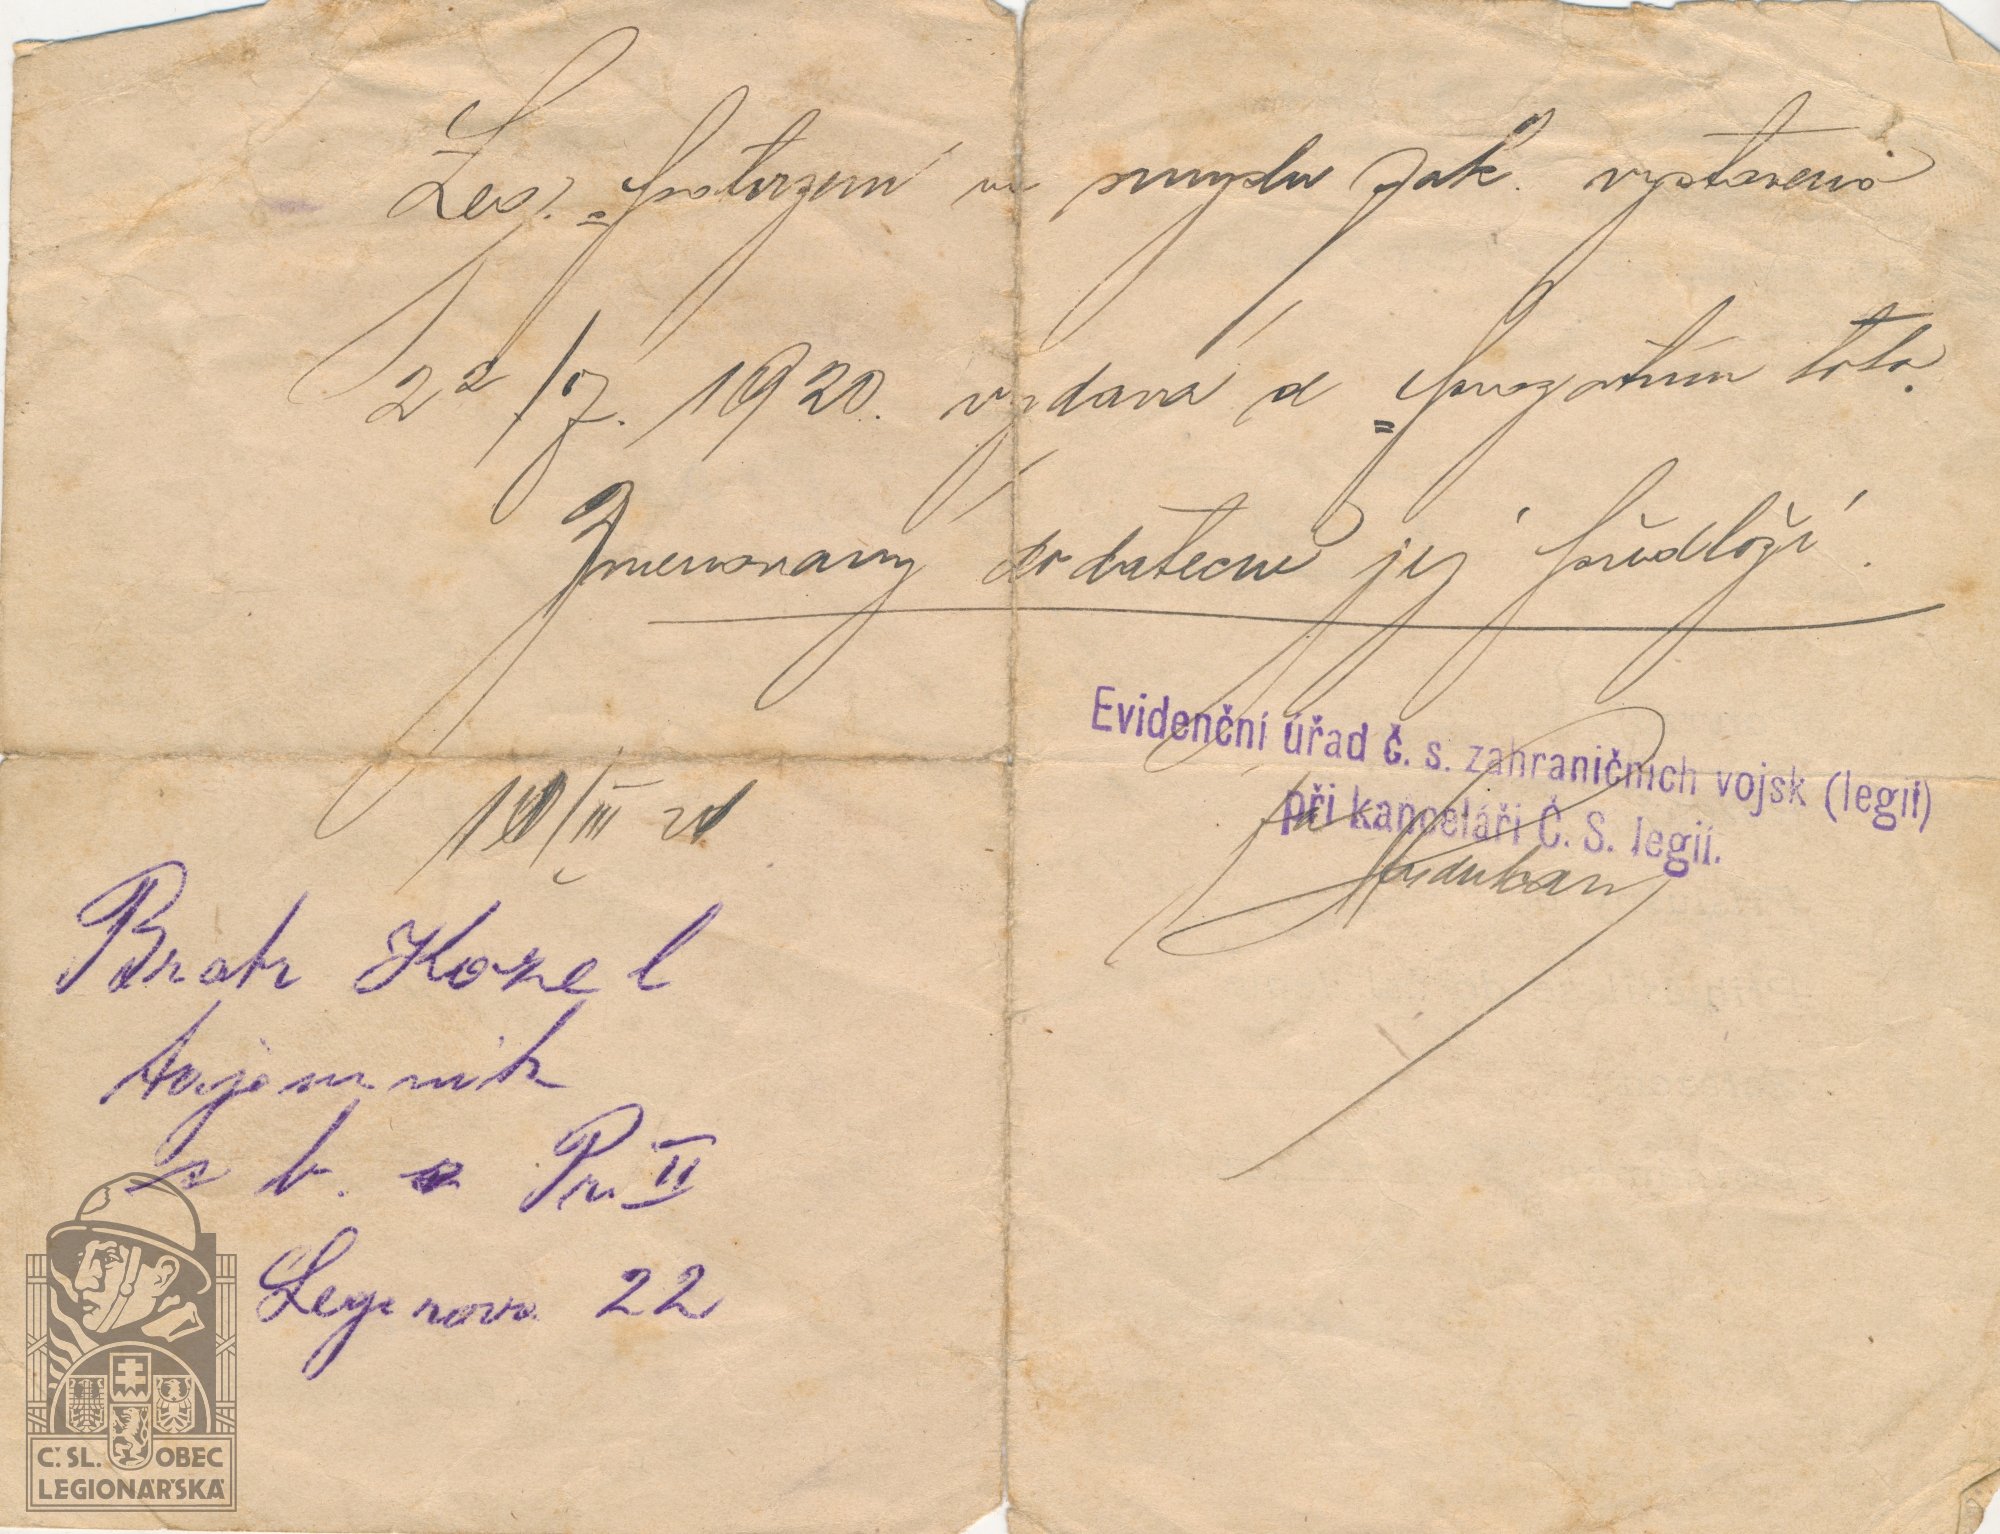 Leg. potvrzení ve smyslu zák. vystavené
22/7. 1920. vydává a prozatím toto.
Jmenovaný dodatečně jej předloží.
10/III 21
Evidenční úřad č. s. zahraničních vojsk (legií)
při kanceláři Č. S. legií.
za
Bratr Kozel
tajemník
s b. Pr. II
Legerova 22
Č. SL. OBEC
LEGIONÁŘSKÁ